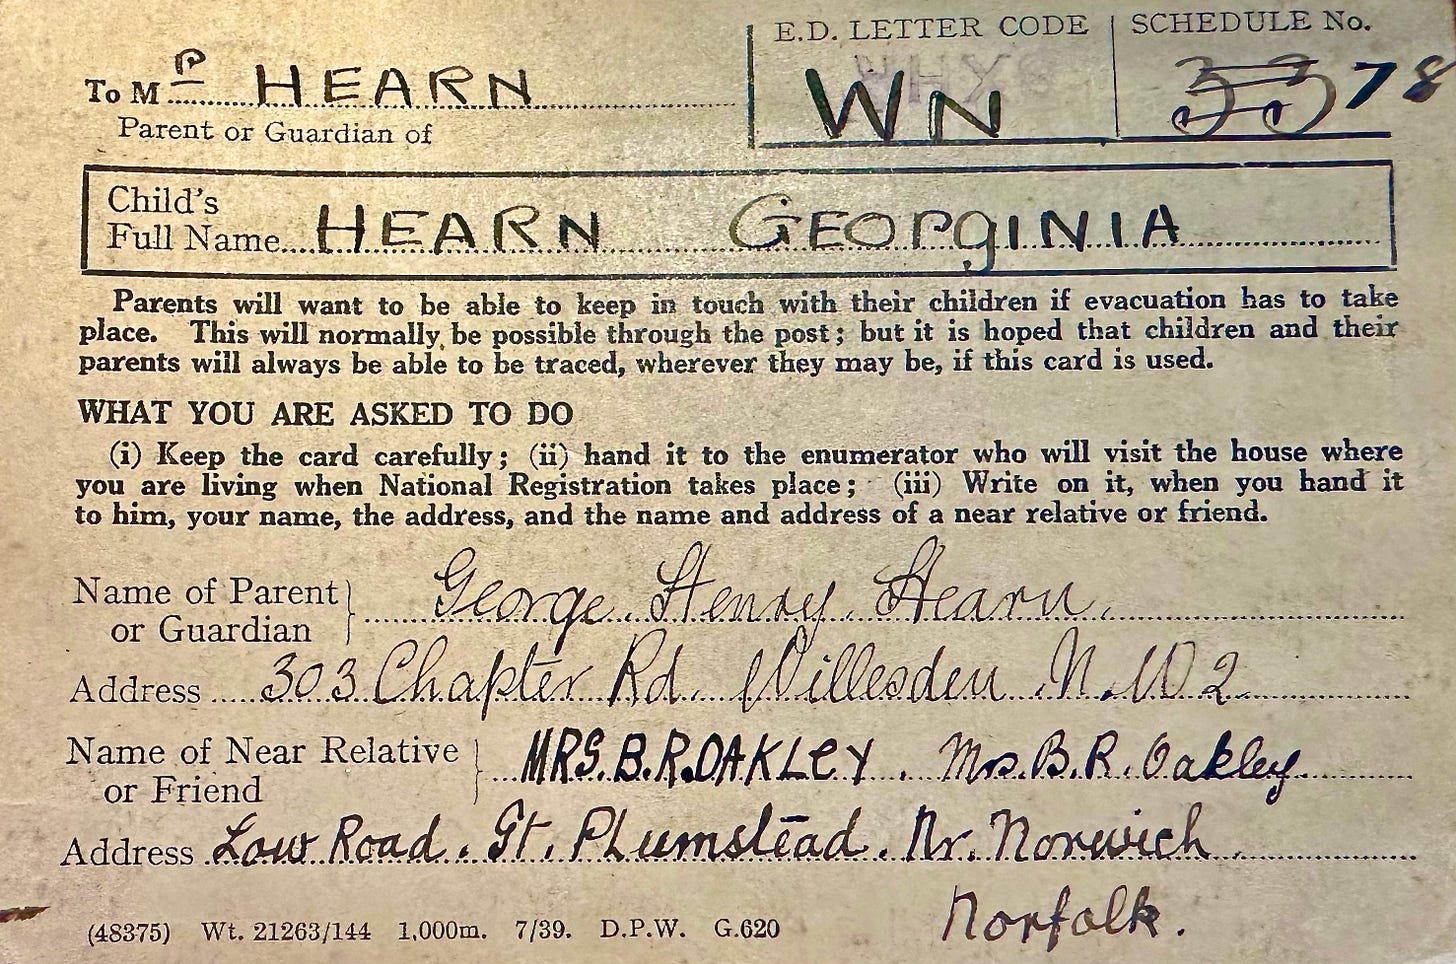 E.D. LETTER CODE SCHEDULE No.
To Mr HEARN WN 78
Parent or Guardian of
Child's
Full Name HEARN GEORgINIA
Parents will want to be able to keep in touch with their children if evacuation has to take
place. This will normally be possible through the post; but it is hoped that children and their
parents will always be able to be traced, wherever they may be, if this card is used.
WHAT YOU ARE ASKED TO DO
(i) Keep the card carefully; (ii) hand it to the enumerator who will visit the house where
you are living when National Registration takes place; (iii) Write on it, when you hand it
to him, your name, the address, and the name and address of a near relative or friend.
Name of Parent
or Guardian George Henry Hearn
Address 303 Chapter Rd. Willesden N.W2
Name of Near Relative
or Friend MRS. B. R. OAKLEY. Mrs. B. R. Oakley
Address Low Road. Gt. PLumstead. Nr. Norwich
Norfolk.
(48375) Wt. 21263/144 1,000m. 7/39. D.P.W. G.620